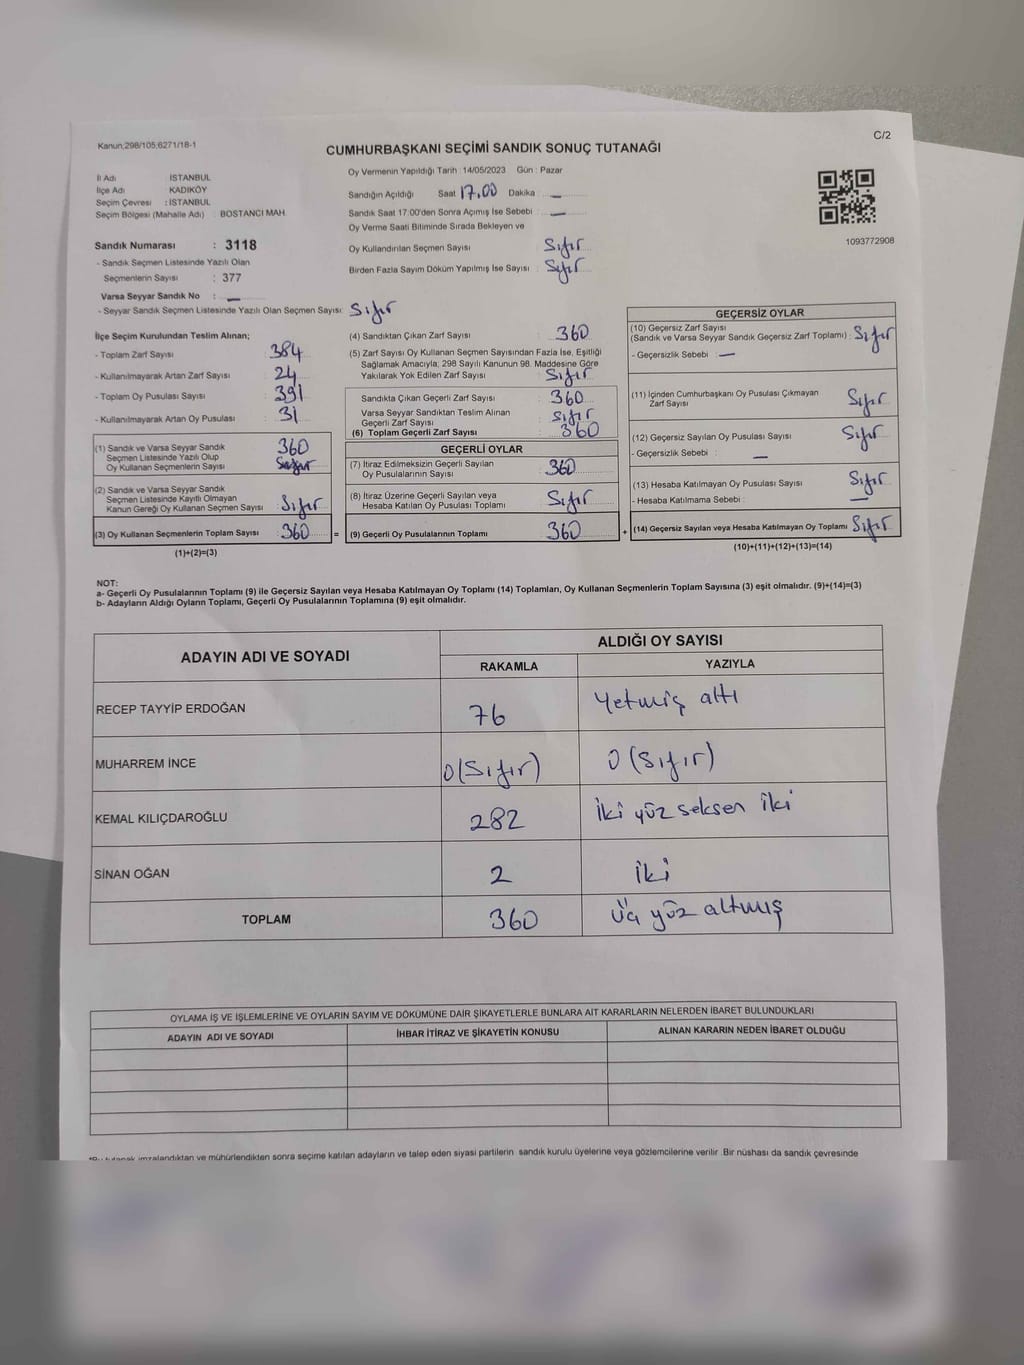 Kanun,298/105;6271/18-1
C/2
CUMHURBAŞKANI SEÇİMİ SANDIK SONUÇ TUTANAĞI
İl Adı İSTANBUL
İlçe Adı KADIKÖY
Seçim Çevresi : İSTANBUL
Seçim Bölgesi (Mahalle Adı) : BOSTANCI MAH.
Sandık Numarası : 3118
- Sandık Seçmen Listesinde Yazılı Olan
Seçmenlerin Sayısı : 377
Varsa Seyyar Sandık No : —
- Seyyar Sandık Seçmen Listesinde Yazılı Olan Seçmen Sayısı: Sıfır
Oy Vermenin Yapıldığı Tarih : 14/05/2023 Gün : Pazar
Sandığın Açıldığı Saat 17.00 Dakika : —
Sandık Saat 17.00'den Sonra Açımış İse Sebebi : —
Oy Verme Saati Bitiminde Sırada Bekleyen ve
Oy Kullandırılan Seçmen Sayısı : Sıfır
Birden Fazla Sayım Döküm Yapılmış İse Sayısı : Sıfır
1093772908
İlçe Seçim Kurulundan Teslim Alınan;
- Toplam Zarf Sayısı : 384
- Kullanılmayarak Artan Zarf Sayısı : 24
- Toplam Oy Pusulası Sayısı : 391
- Kullanılmayarak Artan Oy Pusulası : 31
(1) Sandık ve Varsa Seyyar Sandık
Seçmen Listesinde Yazılı Olup
Oy Kullanan Seçmenlerin Sayısı 360
(2) Sandık ve Varsa Seyyar Sandık
Seçmen Listesinde Kayıtlı Olmayan
Kanun Gereği Oy Kullanan Seçmen Sayısı : Sıfır
(3) Oy Kullanan Seçmenlerin Toplam Sayısı : 360 =
(1)+(2)=(3)
(4) Sandıktan Çıkan Zarf Sayısı : 360
(5) Zarf Sayısı Oy Kullanan Seçmen Sayısından Fazla İse, Eşitliği
Sağlamak Amacıyla, 298 Sayılı Kanunun 98. Maddesine Göre
Yakılarak Yok Edilen Zarf Sayısı : Sıfır
Sandıkta Çıkan Geçerli Zarf Sayısı : 360
Varsa Seyyar Sandıktan Teslim Alınan
Geçerli Zarf Sayısı : Sıfır
(6) Toplam Geçerli Zarf Sayısı : 360
GEÇERLİ OYLAR
(7) İtiraz Edilmeksizin Geçerli Sayılan
Oy Pusulalarının Sayısı : 360
(8) İtiraz Üzerine Geçerli Sayılan veya
Hesaba Katılan Oy Pusulası Toplamı : Sıfır
(9) Geçerli Oy Pusulalarının Toplamı : 360 +
GEÇERSİZ OYLAR
(10) Geçersiz Zarf Sayısı
(Sandık ve Varsa Seyyar Sandık Geçersiz Zarf Toplamı) : Sıfır
- Geçersizlik Sebebi : —
(11) İçinden Cumhurbaşkanı Oy Pusulası Çıkmayan
Zarf Sayısı : Sıfır
(12) Geçersiz Sayılan Oy Pusulası Sayısı : Sıfır
- Geçersizlik Sebebi : —
(13) Hesaba Katılmayan Oy Pusulası Sayısı : Sıfır
- Hesaba Katılmama Sebebi : —
(14) Geçersiz Sayılan veya Hesaba Katılmayan Oy Toplamı : Sıfır
(10)+(11)+(12)+(13)=(14)
NOT:
a- Geçerli Oy Pusulalarının Toplamı (9) ile Geçersiz Sayılan veya Hesaba Katılmayan Oy Toplamı (14) Toplamları, Oy Kullanan Seçmenlerin Toplam Sayısına (3) eşit olmalıdır. (9)+(14)=(3)
b- Adayların Aldığı Oyların Toplamı, Geçerli Oy Pusulalarının Toplamına (9) eşit olmalıdır.
ADAYIN ADI VE SOYADI
ALDIĞI OY SAYISI
RAKAMLA YAZIYLA
RECEP TAYYİP ERDOĞAN 76 Yetmiş altı
MUHARREM İNCE 0(Sıfır) 0 (Sıfır)
KEMAL KILIÇDAROĞLU 282 İki yüz seksen iki
SİNAN OĞAN 2 iki
TOPLAM 360 Üç yüz altmış
OYLAMA İŞ VE İŞLEMLERİNE VE OYLARIN SAYIM VE DÖKÜMÜNE DAİR ŞİKAYETLERLE BUNLARA AİT KARARLARIN NELERDEN İBARET BULUNDUKLARI
ADAYIN ADI VE SOYADI İHBAR İTİRAZ VE ŞİKAYETİN KONUSU ALINAN KARARIN NEDEN İBARET OLDUĞU
*Bu tutanak imzalandıktan ve mühürlendikten sonra seçime katılan adayların ve talep eden siyasi partilerin sandık kurulu üyelerine veya gözlemcilerine verilir .Bir nüshası da sandık çevresinde